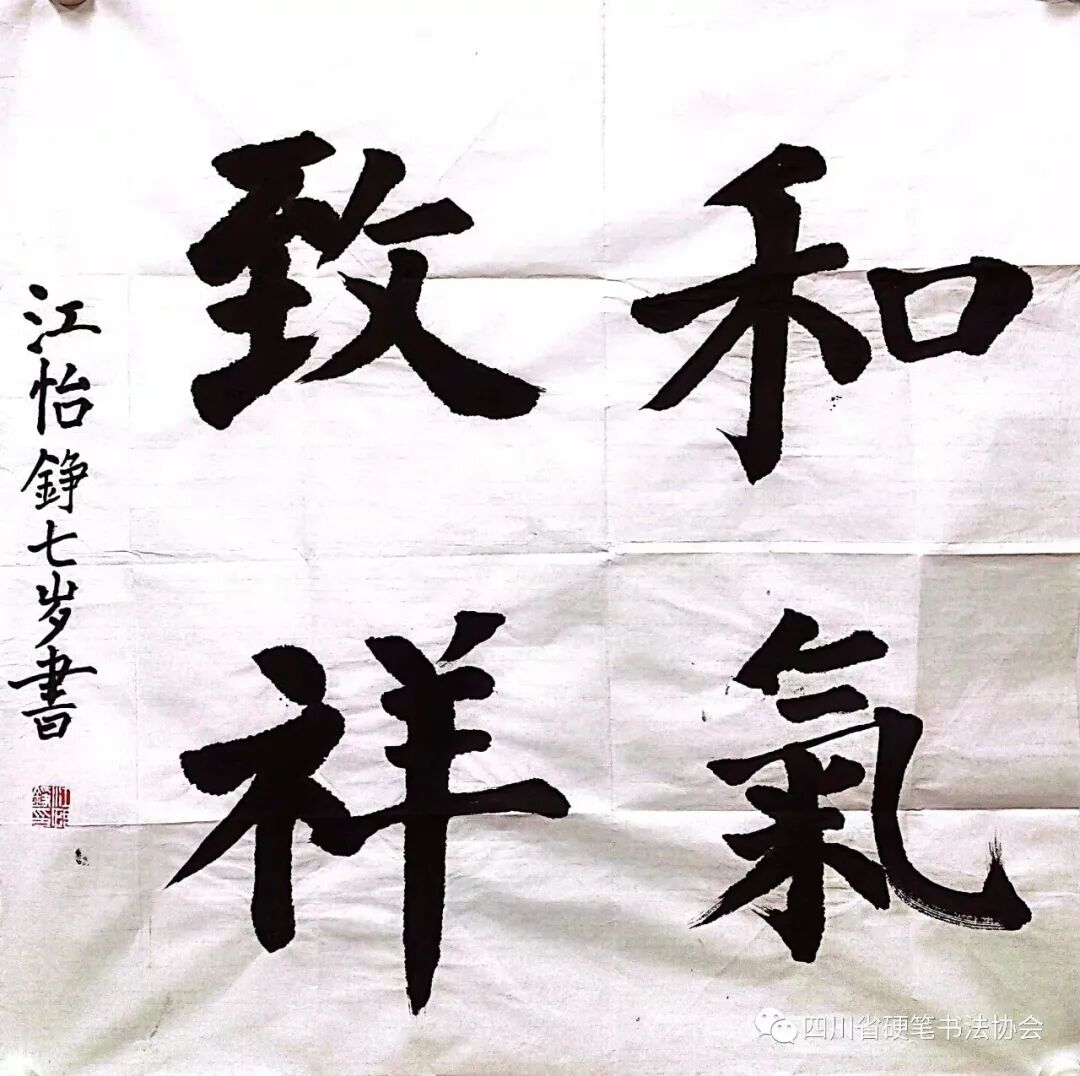 和氣
致祥
江怡錚七岁書
四川省硬笔书法协会